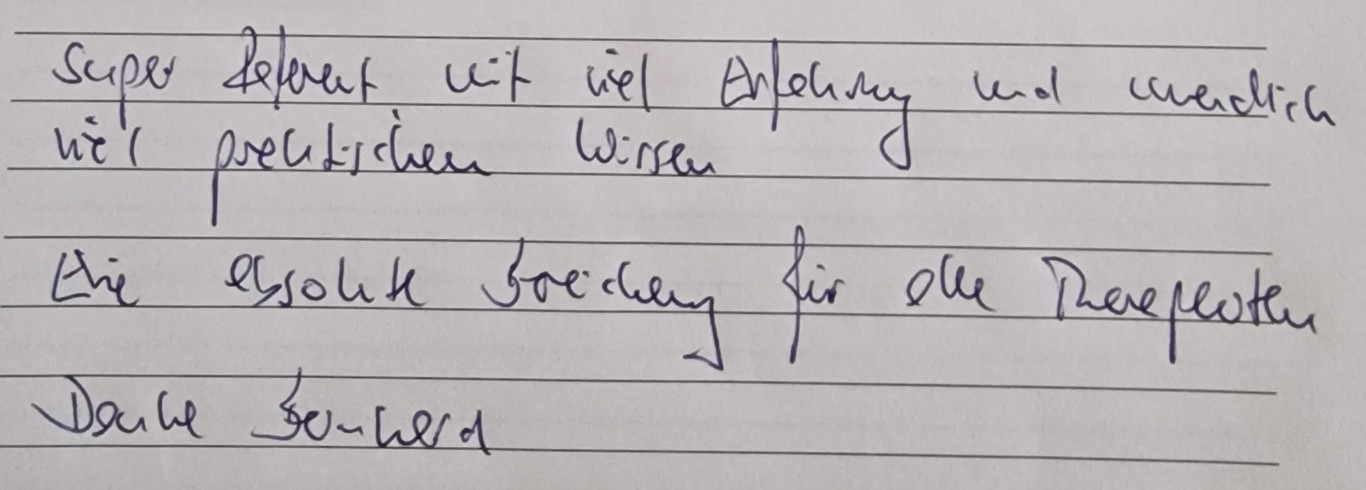 Super Referent mit viel Erfahrung und unendlich
viel praktischen Wissen
Eine absolute Bereicherung für alle Therapeuten
Danke Bernhard